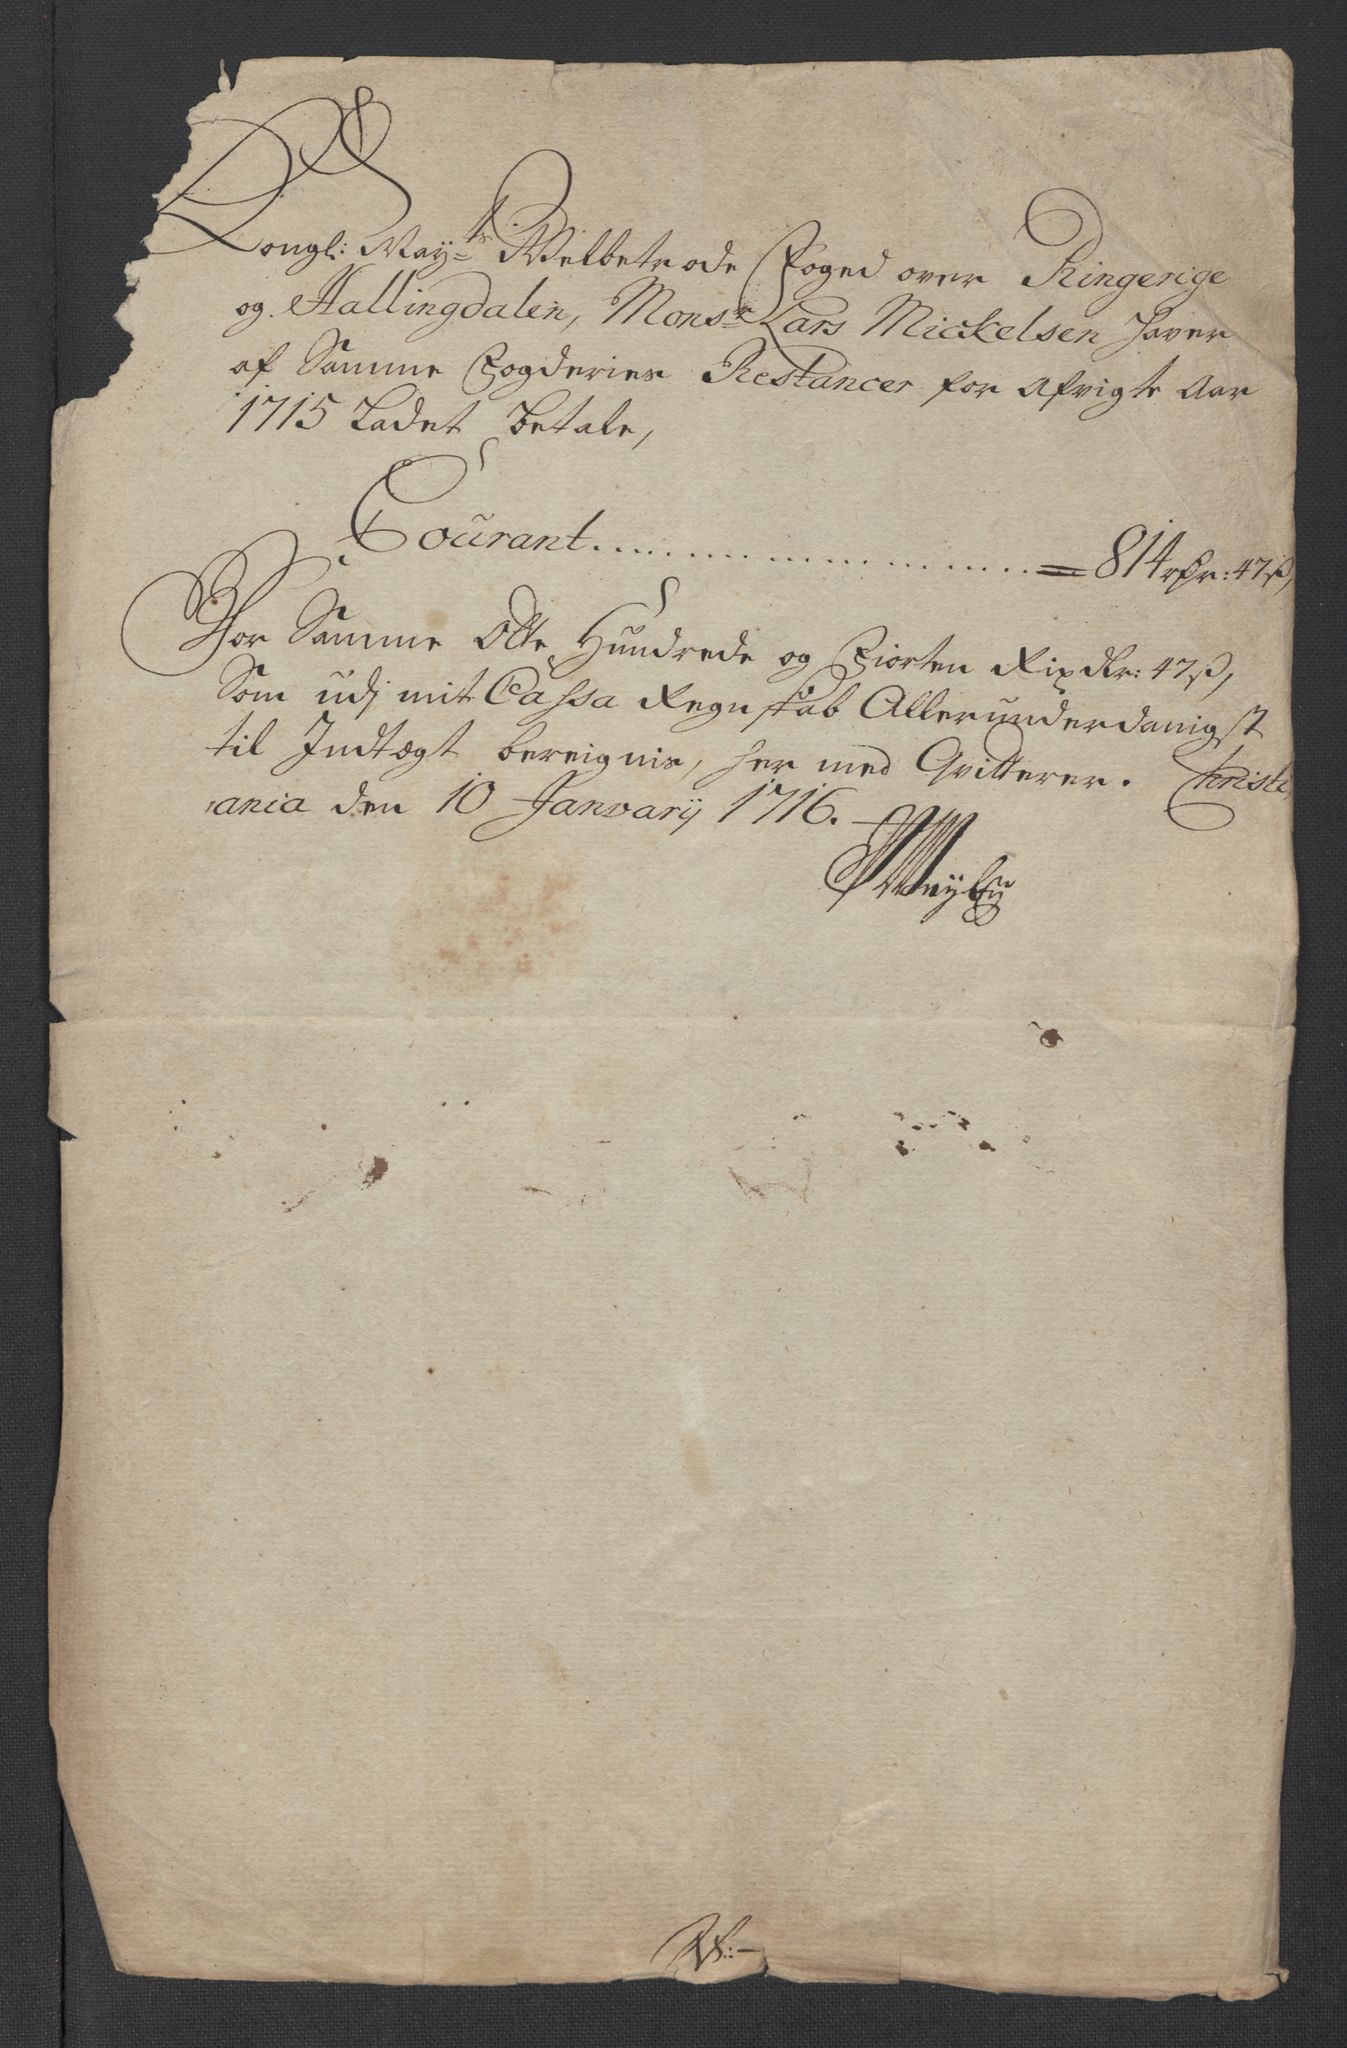 Kongl: May:ts Welbetrode Foged over Ringerige
og Hallingdalen, Mons:r Lars Mickelsen haver
af Samme Fogderies Restancer for afvigte Aar
1715 Ladet betale,
Courant. . . . . . . . . . . . . . . . = 814 rdr: 47 ß,
For Samme Otte Hundrede og Fiorten Rixdlr: 47 ß,
Som udj mit Cassa Regnskab Allerunderdanigst
til Indtægt bereignis, her med Qvitterer. Christi,
ania den 10 Janvarij 1716.